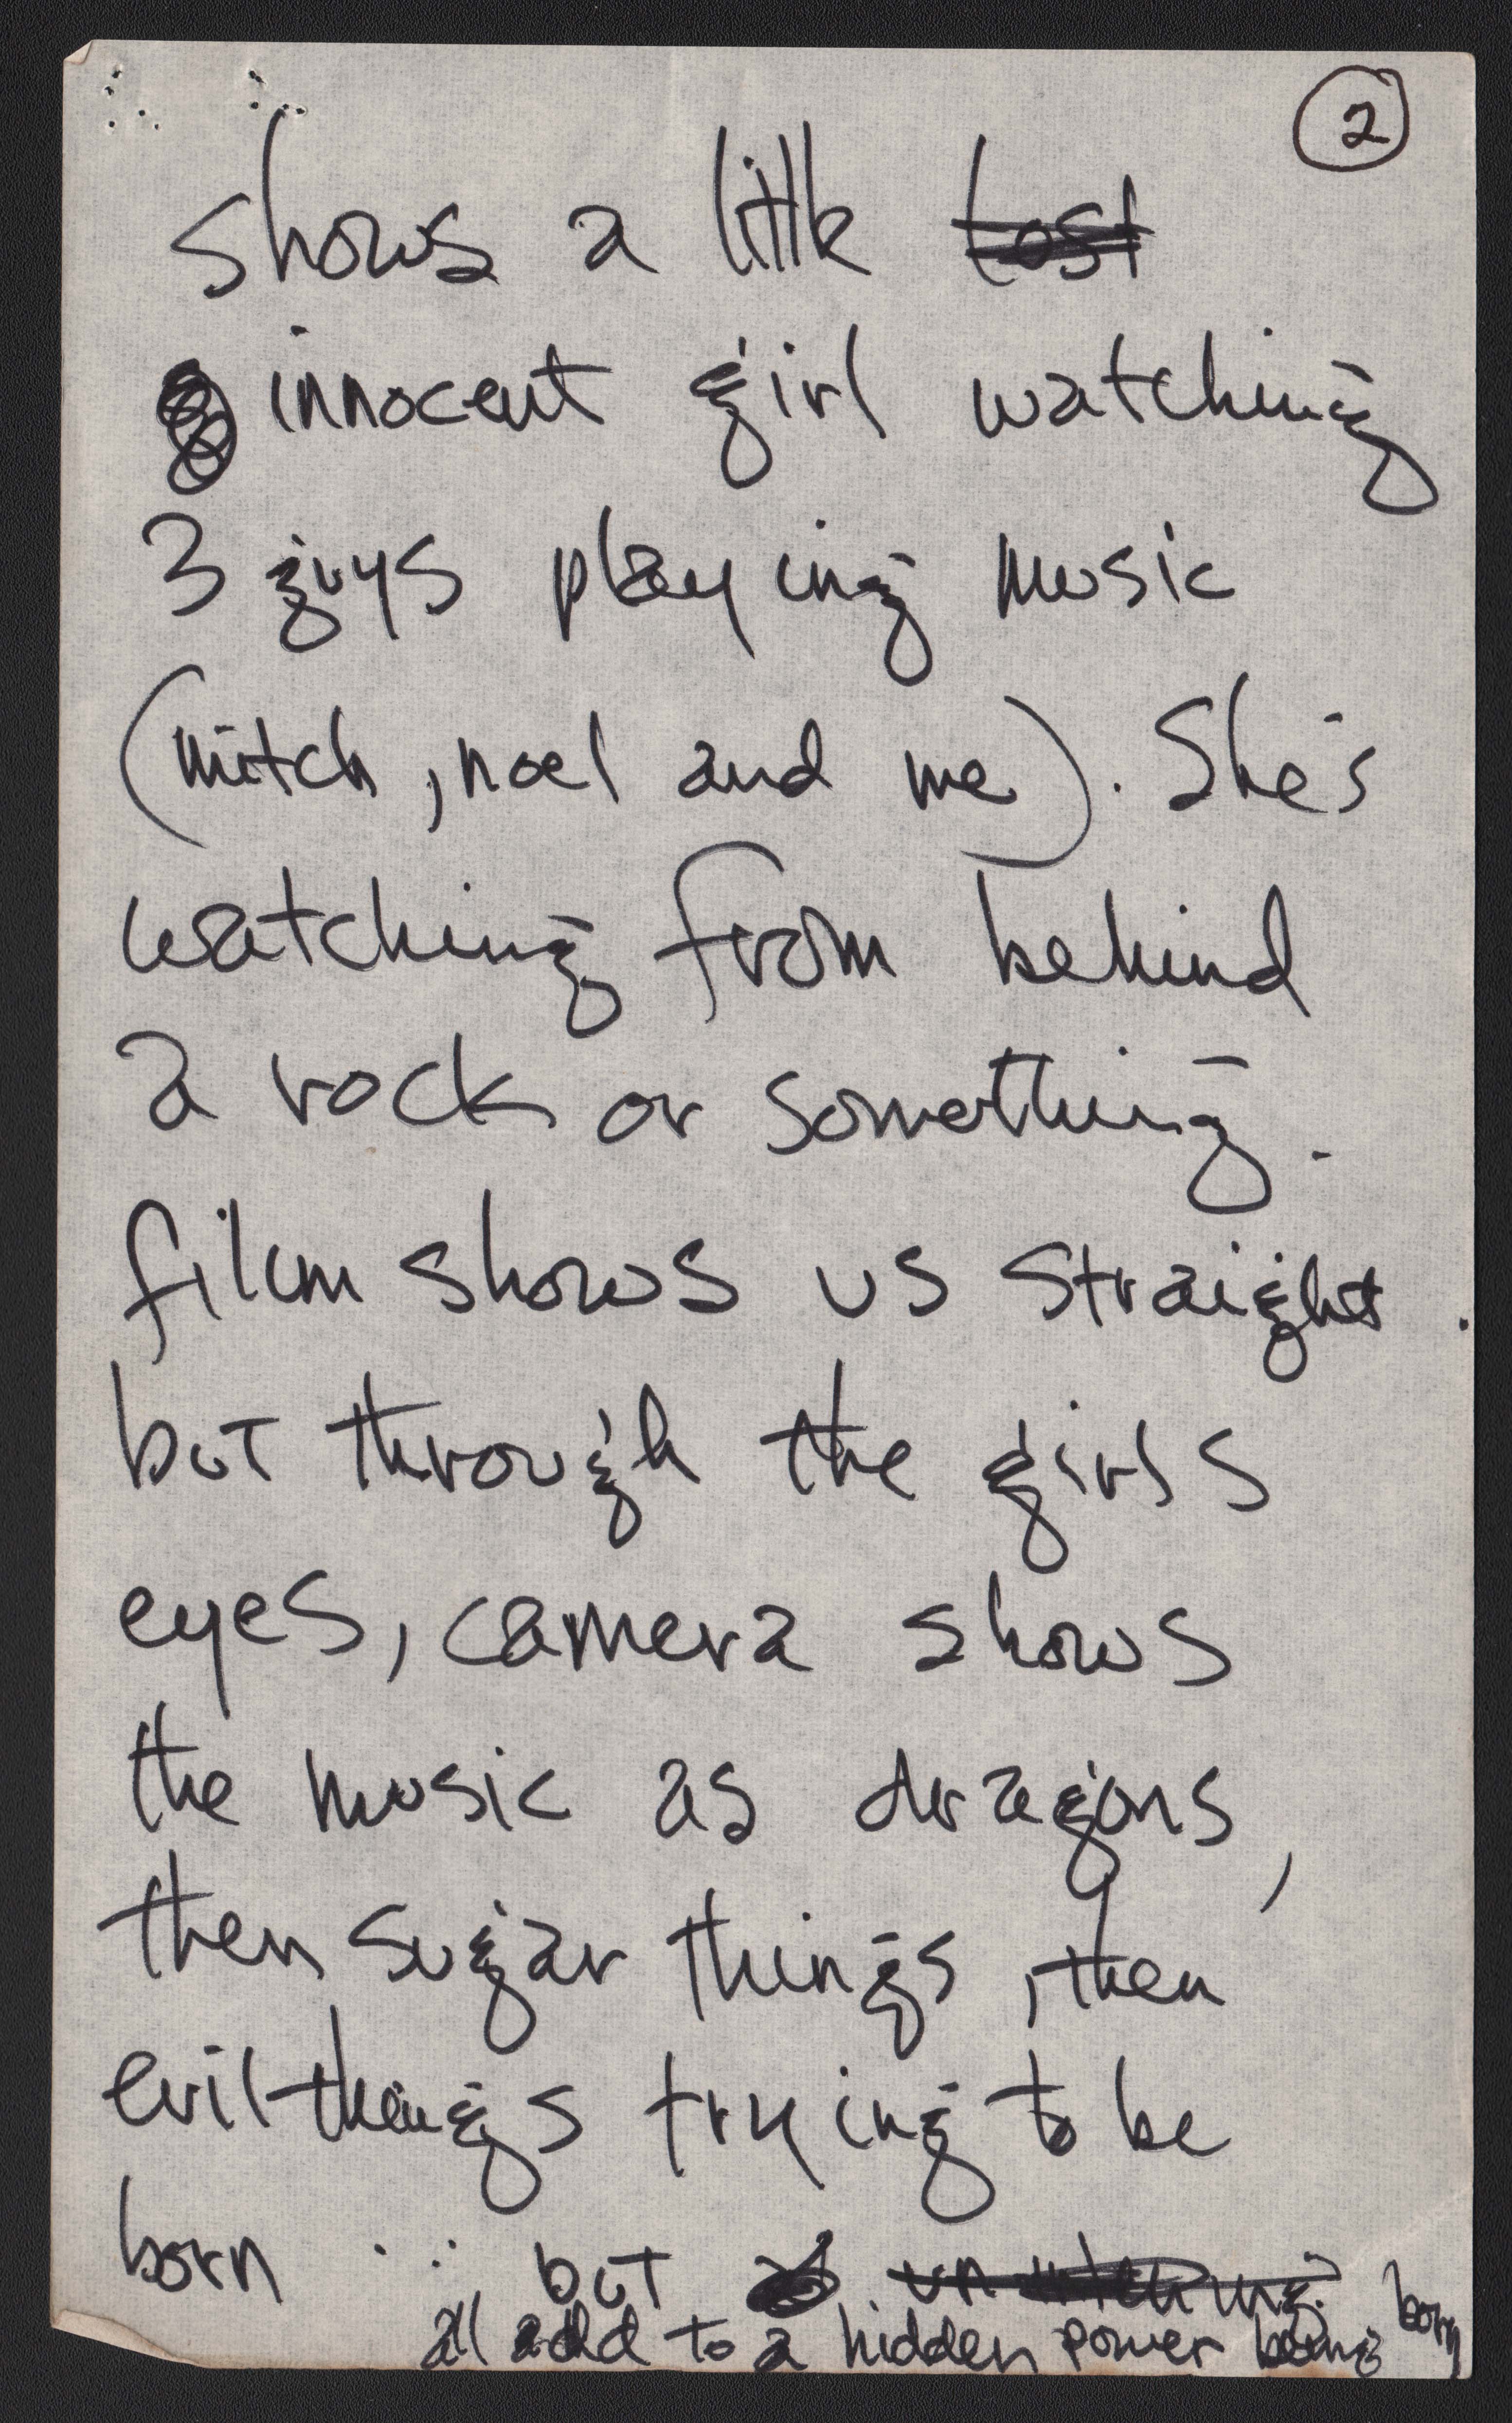 2
shows a little lost
innocent girl watching
3 guys playing music
(mitch, noel and me). She's
watching from behind
a rock or something.
film shows us straight.
but through the girls
eyes, camera shows
the music as dragons,
then sugar things, then
evil things trying to be
born ... but
all add to a hidden power being born